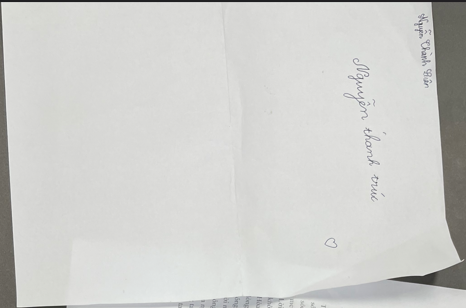 Nguyễn Thành Biên
Nguyễn thanh trúc